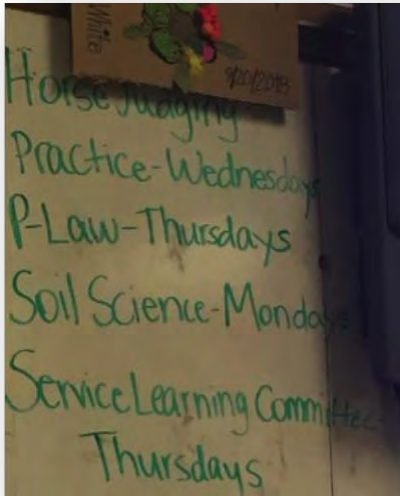 White
9/20/2018
Horse Judging
Practice-Wednesdays
P-Law-Thursdays
Soil Science-Mondays
Service Learning Committee-
Thursdays